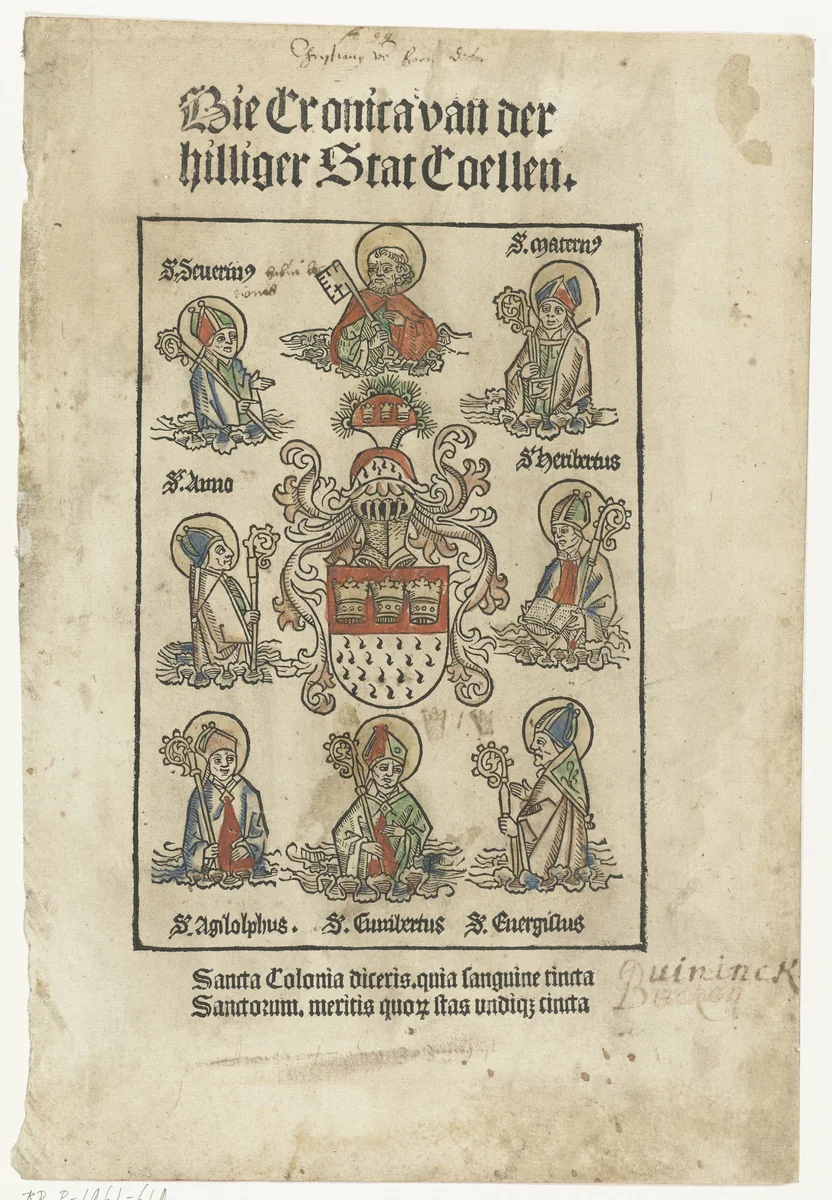 Die Cronica van der
hilliger Stat Coellen.
S. Seuerinꝰ
S. Maternꝰ
S. Anno
S. Heribertus
S. Agilolphus.
S. Cunibertus
S. Euergislus
Sancta Colonia diceris. quia sanguine tincta
Sanctorum. meritis quoꝝ stas vndiqꝫ cincta
Quininck